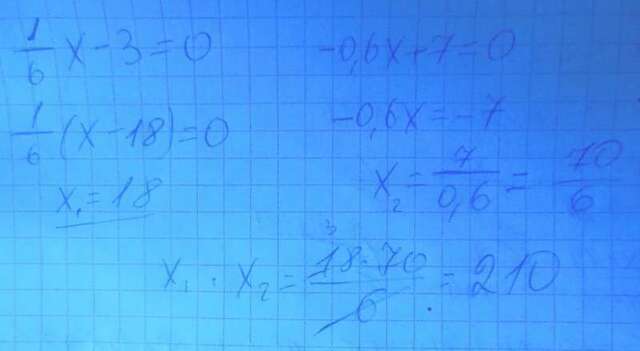 1/6 x - 3 = 0
1/6 (x - 18) = 0
x₁ = 18
-0,6x + 7 = 0
-0,6x = -7
x₂ = 7/0,6 = 70/6
x₁ · x₂ = 18 · 70 / 6 = 210
3